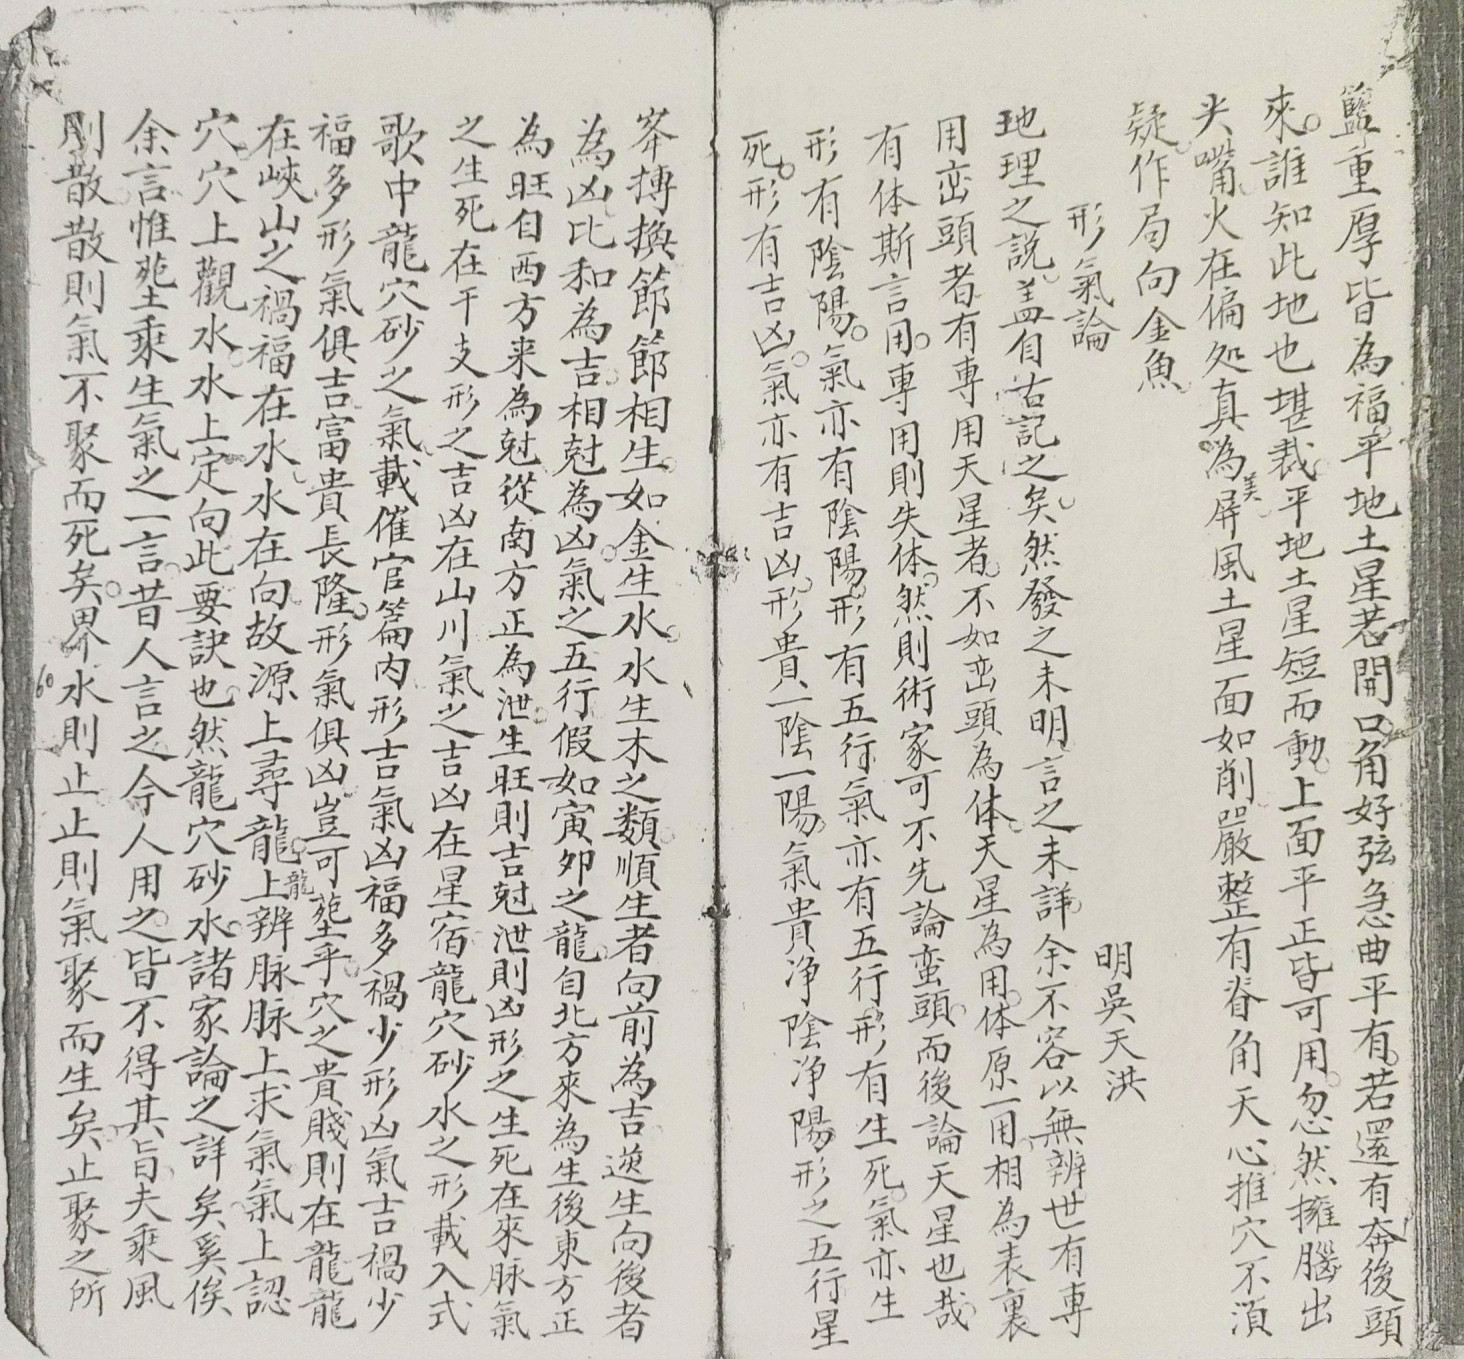 籃重厚皆為福平地土星若開口角好弦急曲平有若還有奔後頭
來誰知此地也堪裁平地土星短而動上面平正皆可用忽然擁腦出
尖嘴火在偏処真為美屏風土星面如削凹嚴整有脊角天心推穴不湏
疑作局向金魚
形氣論
明吳天洪
地理之說盖自古記之矣然發之未明言之未詳余不容以無辨世有專
用峦頭者有專用天星者不如峦頭為体天星為用体原一用相為表裏
有体斯言用專用則失体然則術家可不先論蛮頭而後論天星也哉
形有陰陽氣亦有陰陽形有五行氣亦有五行形有生死氣亦生
死形有吉凶氣亦有吉凶形貴一陰一陽氣貴淨陰淨陽形之五行星
峯摶換節節相生如金生水水生木之類順生者向前為吉逆生向後者
為凶比和為吉相尅為凶氣之五行假如寅夘之龍自北方來為生後東方正
為旺自西方来為尅從南方正為泄生旺則吉尅泄則凶形之生死在來脉氣
之生死在干支形之吉凶在山川氣之吉凶在星宿龍穴砂水之形載入式
歌中龍穴砂之氣載催官篇内形吉氣凶福多禍少形凶氣吉禍少
福多形氣俱吉富貴長隆形氣俱凶豈可塟乎穴之貴賤則在龍龍
在峽山之禍福在水水在向故源上尋龍龍上辨脉脉上求氣氣上認
穴穴上觀水水上定向此要訣也然龍穴砂水諸家論之詳矣奚俟
余言惟塟乘生氣之一言昔人言之今人用之皆不得其旨夫乘風
則散散則氣不聚而死矣界水則止止則氣聚而生矣止聚之所
60